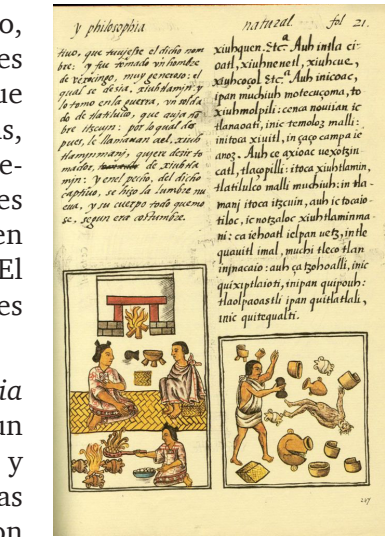 o,
es
ue
s,
e-
es
en
El
es
ia
un
y
as
on
y philosophia
natural.
fol 21.
tivo, que tuviesse el dicho nom
bre: y fue tomado vn hombre
de vexocingo, muy generoso: el
qual se desia, xiuhtlamin: y
lo tomo en la guerra, vn solda
do de tlatilulco, que auja no
bre itzcuin: por lo qual des
pues, le llamauan ael, xiuh
tlamjnmanj, qujere desir to
mador, de xiuhtla
mjn: y en el pecho, del dicho
captiuo, se hizo la lumbre nu
eua, y su cuerpo todo quemo
se, segun era costumbre.
xiuhquen. Etcª Auh intla ci-
oatl, xiuhnenetl, xiuhcue,
xiuhcoçol Etcª Auh iniquac,
ipan muchiuh motecuçoma, to
xiuhmolpili: cenca nouian ic
tlanaoati, inic temoloz malli:
initoca xiuitl, in çaço campa ic
anoz. Auh ce axioac uexotzin-
catl, tlaçopilli: itoca xiuhtlamin,
tlatilulco malli muchiuh: in tla-
manj itoca itzcuin, auh ic tocaio-
tiloc, ic notzaloc xiuhtlaminma
ni: ca iehoatl ielpan uetz, in tle
quauitl imal, muchi tleco tlan
injnacaio: auh ça tzohoalli, inic
quixiptlaioti, inipan quipouh:
tlaolpaoastli ipan quitlatlali,
inic quitequalti.